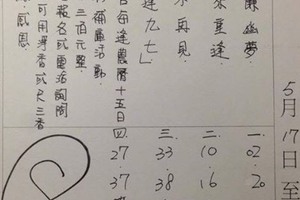 5月17日至
幽夢
重逢
再見
逢九七」
每逢農曆十五日
補庫活動
三佰元整
報名或電洽詢問
可用淨香或尺三香
感恩
一. 02 20
二. 10 16
三. 33 38
四. 27 37